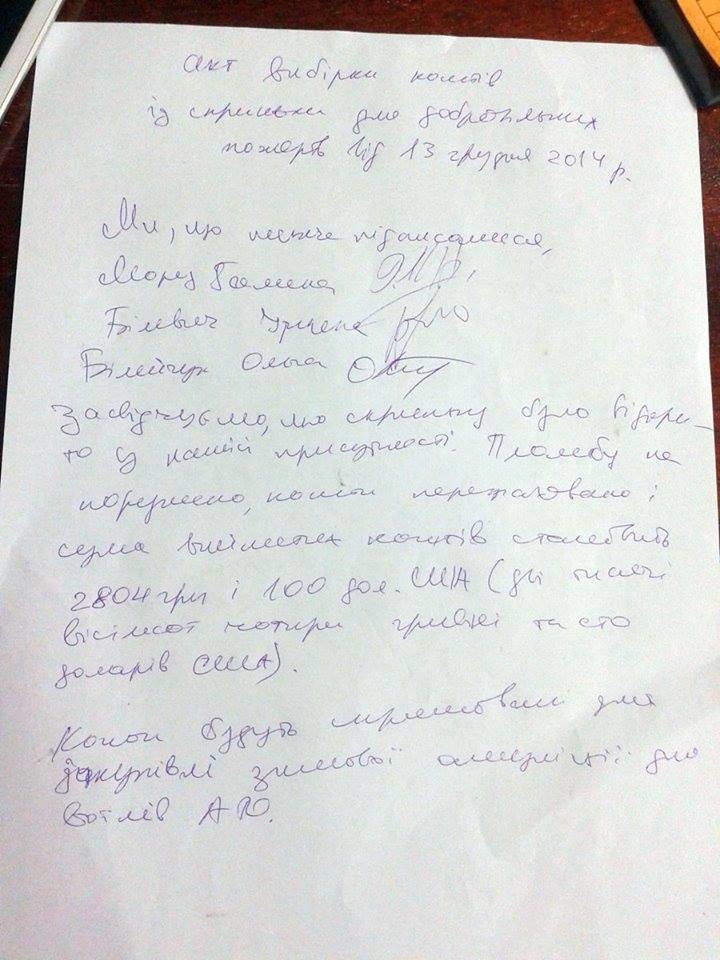 Акт вибірки коштів
із скриньки для добровільних
пожертв від 13 грудня 2014 р.
Ми, що нижче підписалися,
Мороз Галина
Білевич Уляна
Білейчук Ольга
Засвідчуємо, що скриньку було відкри-
то у нашій присутності. Пломбу не
порушено, кошти перераховано і
сума вийнятих коштів становить
2804 грн і 100 дол. США (дві тисячі
вісімсот чотири гривні та сто
доларів США).
Кошти будуть спрямовані для
закупівлі зимової амуніції для
воїнів АТО.